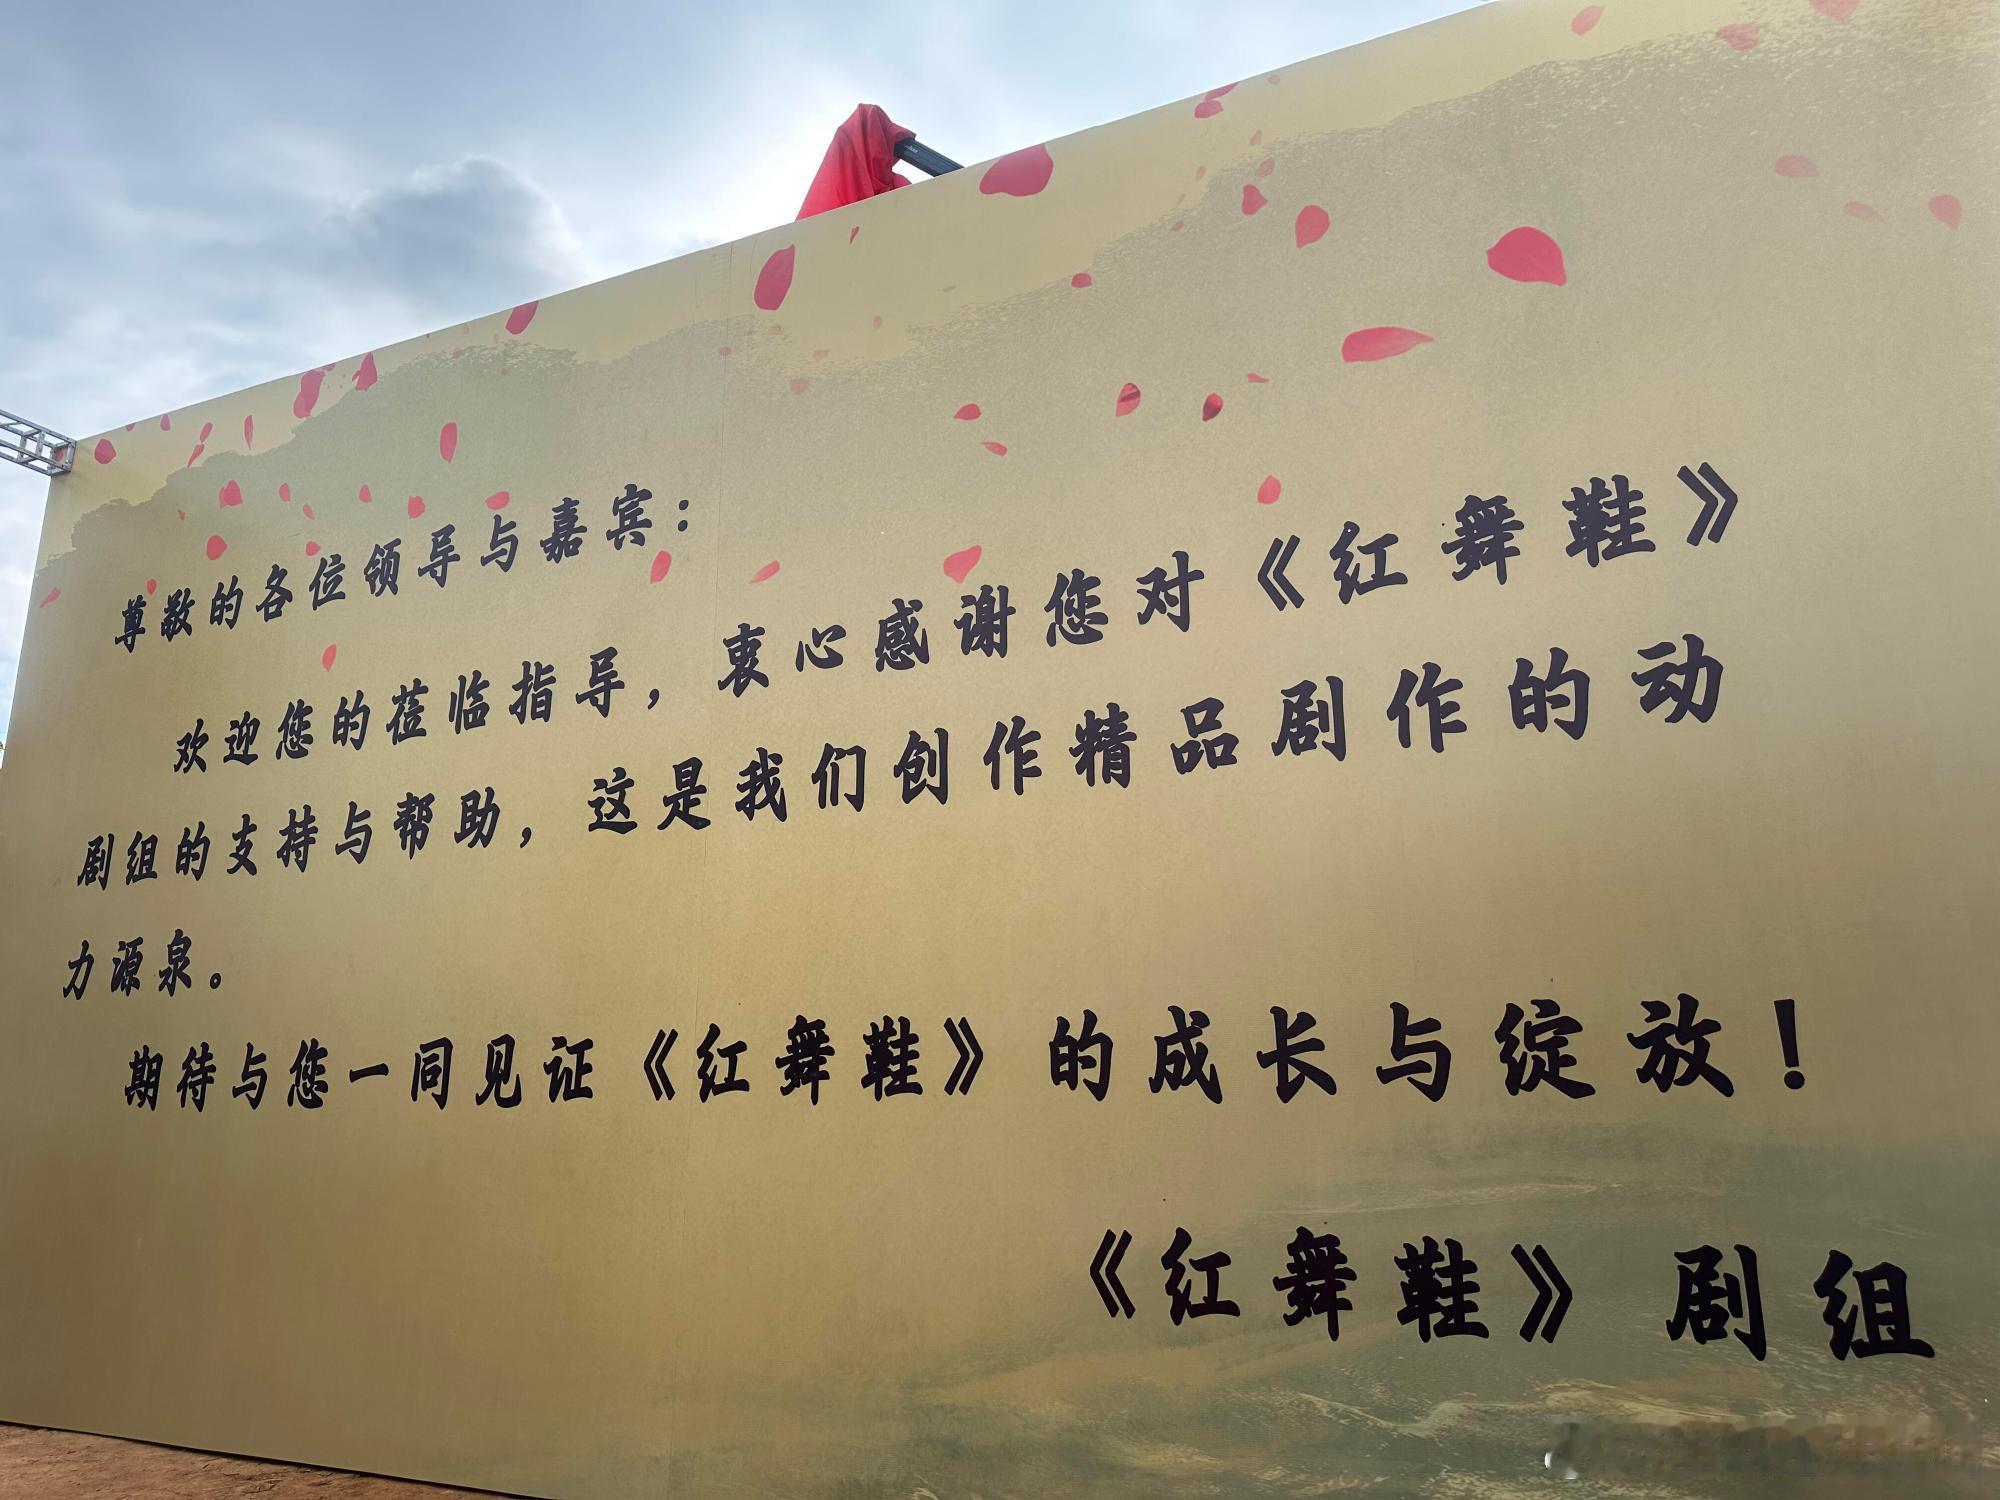 尊敬的各位领导与嘉宾：
欢迎您的莅临指导，衷心感谢您对《红舞鞋》
剧组的支持与帮助，这是我们创作精品剧作的动
力源泉。
期待与您一同见证《红舞鞋》的成长与绽放！
《红舞鞋》剧组